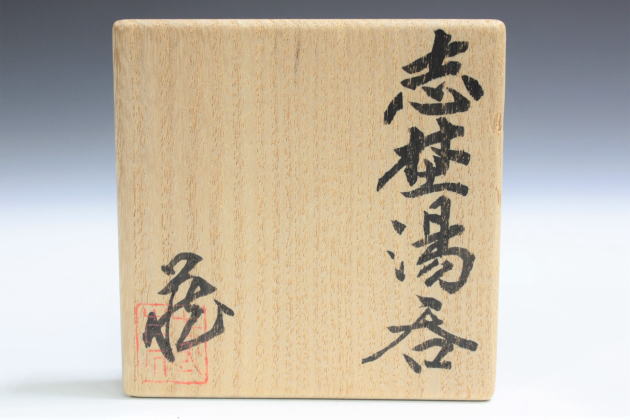 志埜湯呑
藏